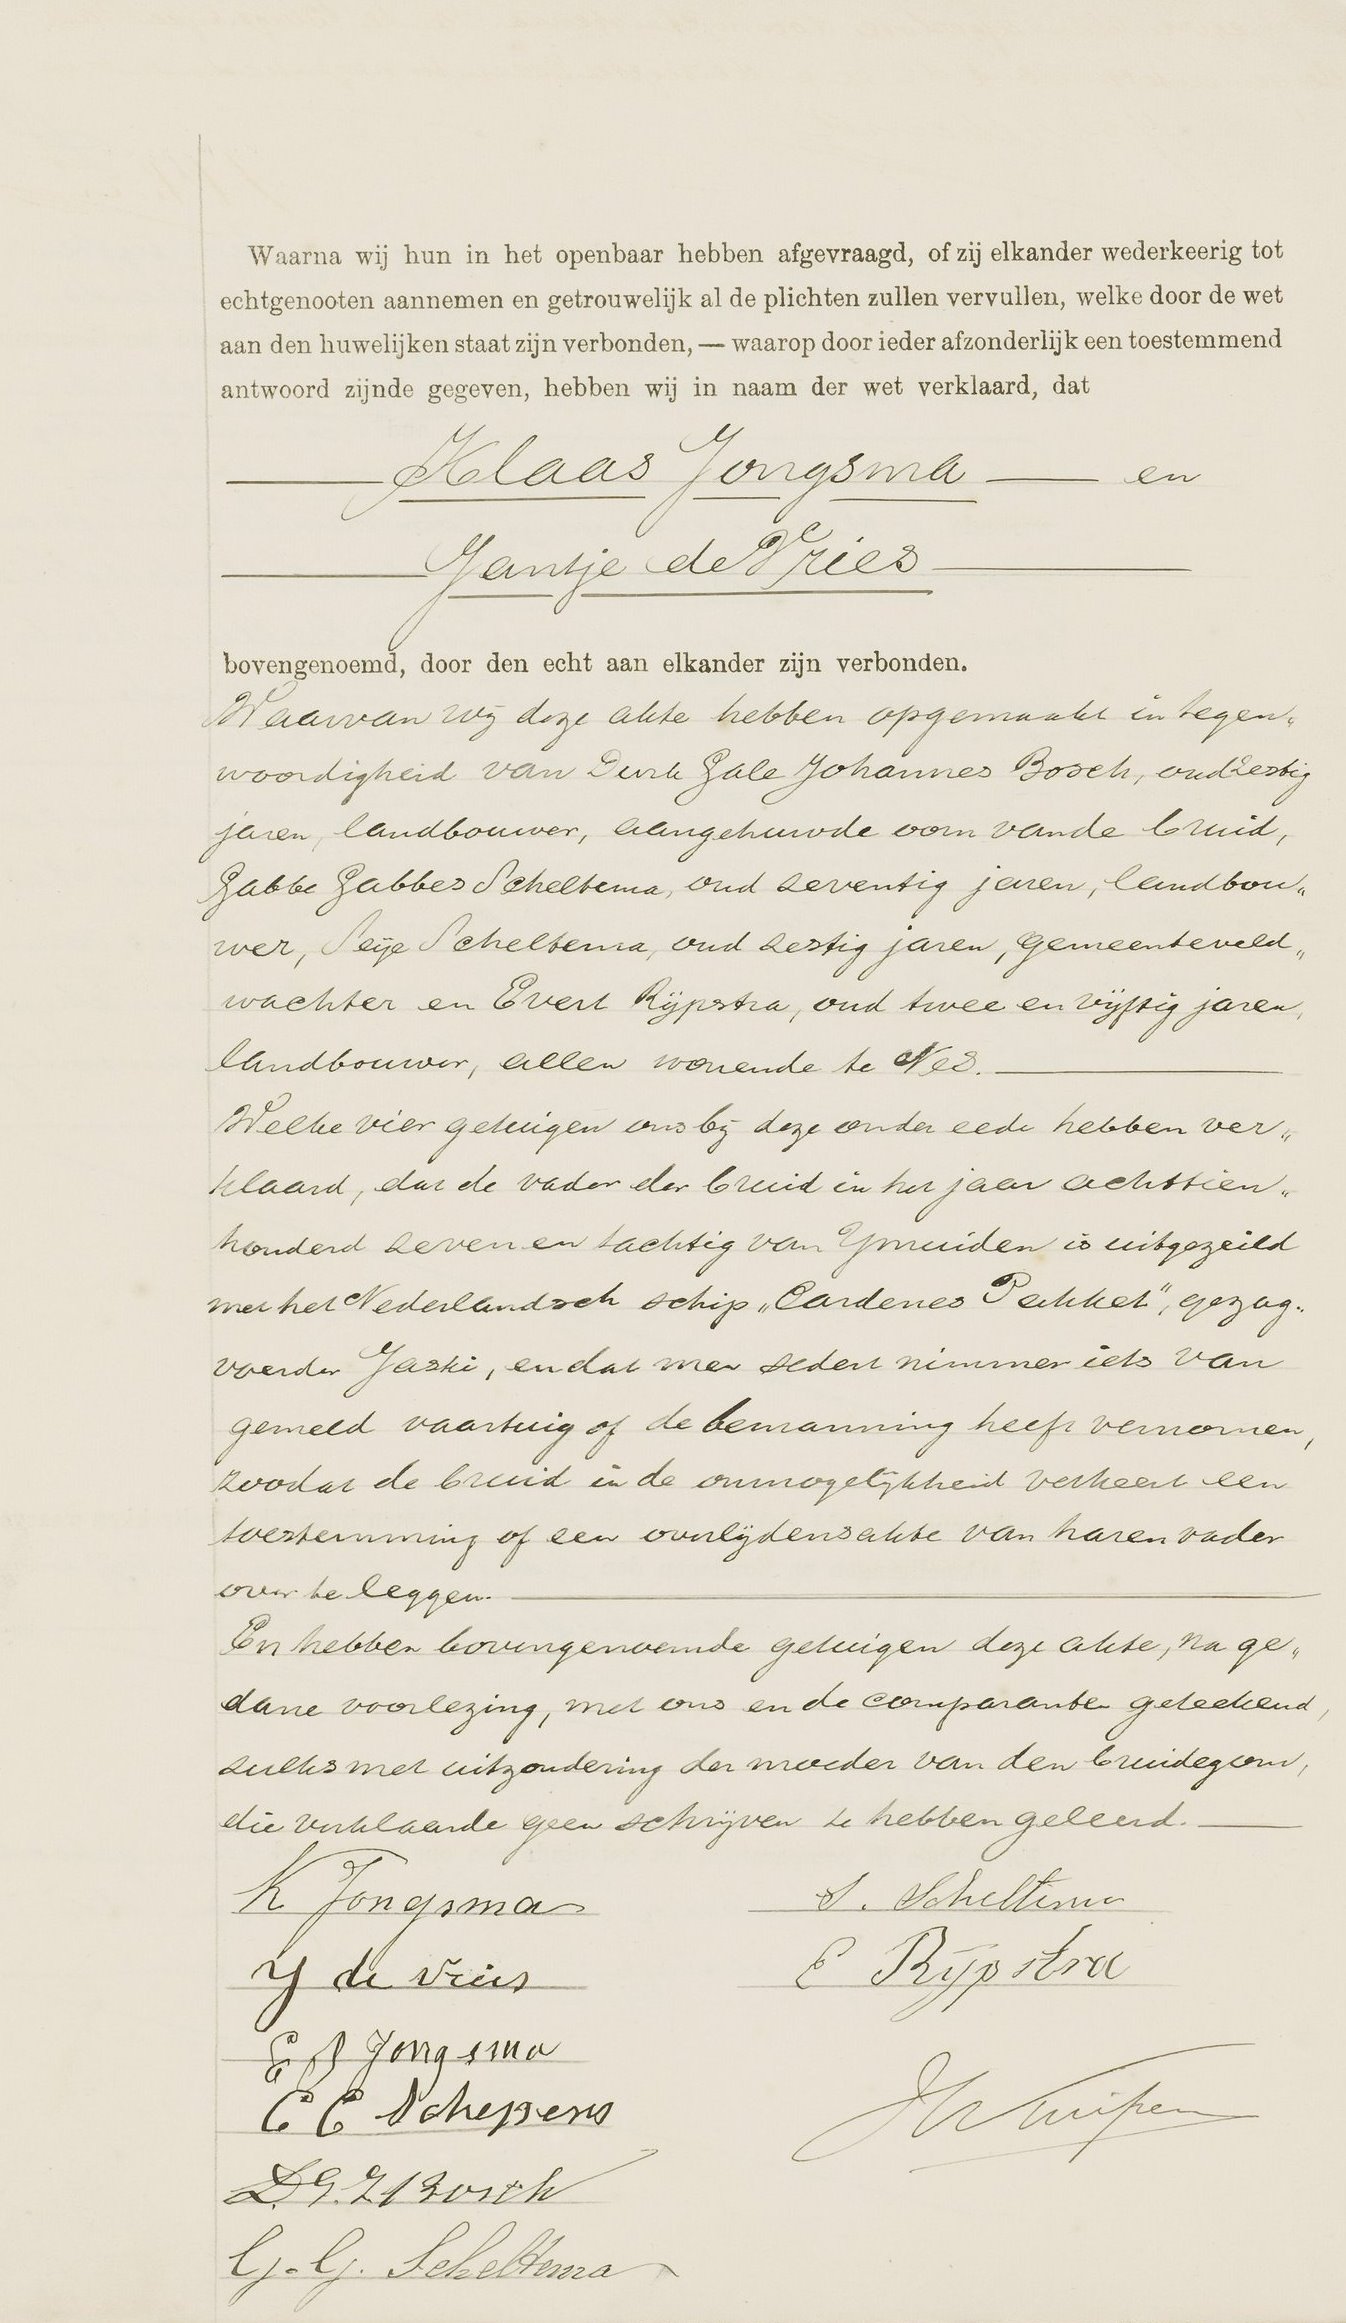 Waarna wij hun in het openbaar hebben afgevraagd, of zij elkander wederkeerig tot
echtgenooten aannemen en getrouwelijk al de plichten zullen vervullen, welke door de wet
aan den huwelijken staat zijn verbonden, — waarop door ieder afzonderlijk een toestemmend
antwoord zijnde gegeven, hebben wij in naam der wet verklaard, dat
Klaas Jongsma en
Jantje de Vries
bovengenoemd, door den echt aan elkander zijn verbonden.
Waarvan wij deze akte hebben opgemaakt in tegen„
woordigheid van Durk Gale Johannes Bosch, oud zestig
jaren, landbouwer, aangehuwde oom van de bruid,
Gabbe Gabbes Scheltema, oud zeventig jaren, landbou„
wer, Seije Scheltema, oud zestig jaren, gemeenteveld„
wachter en Evert Rijpstra, oud twee en vijftig jaren,
landbouwer, allen wonende te Nes.
Welke vier getuigen ons bij deze onder eede hebben ver„
klaard, dat de vader der bruid in het jaar achttien„
honderd zeven en tachtig van Ymuiden is uitgezeild
met het Nederlandsch schip „Cardenes Pakket", gezag„
voerder Jaski, en dat men sedert nimmer iets van
gemeld vaartuig of de bemanning heeft vernomen,
zoodat de bruid in de onmogelijkheid verkeert een
toestemming of een overlijdensakte van haren vader
over te leggen.
En hebben bovengenoemde getuigen deze akte, na ge„
dane voorlezing, met ons en de comparanten geteekend,
zulks met uitzondering der moeder van den bruidegom,
die verklaarde geen schrijven te hebben geleerd.
K Jongsma
S. Scheltema
J de Vries
E Rijpstra
Jongsma
E E Schepens
D. G. J Bosch
G. G. Scheltema